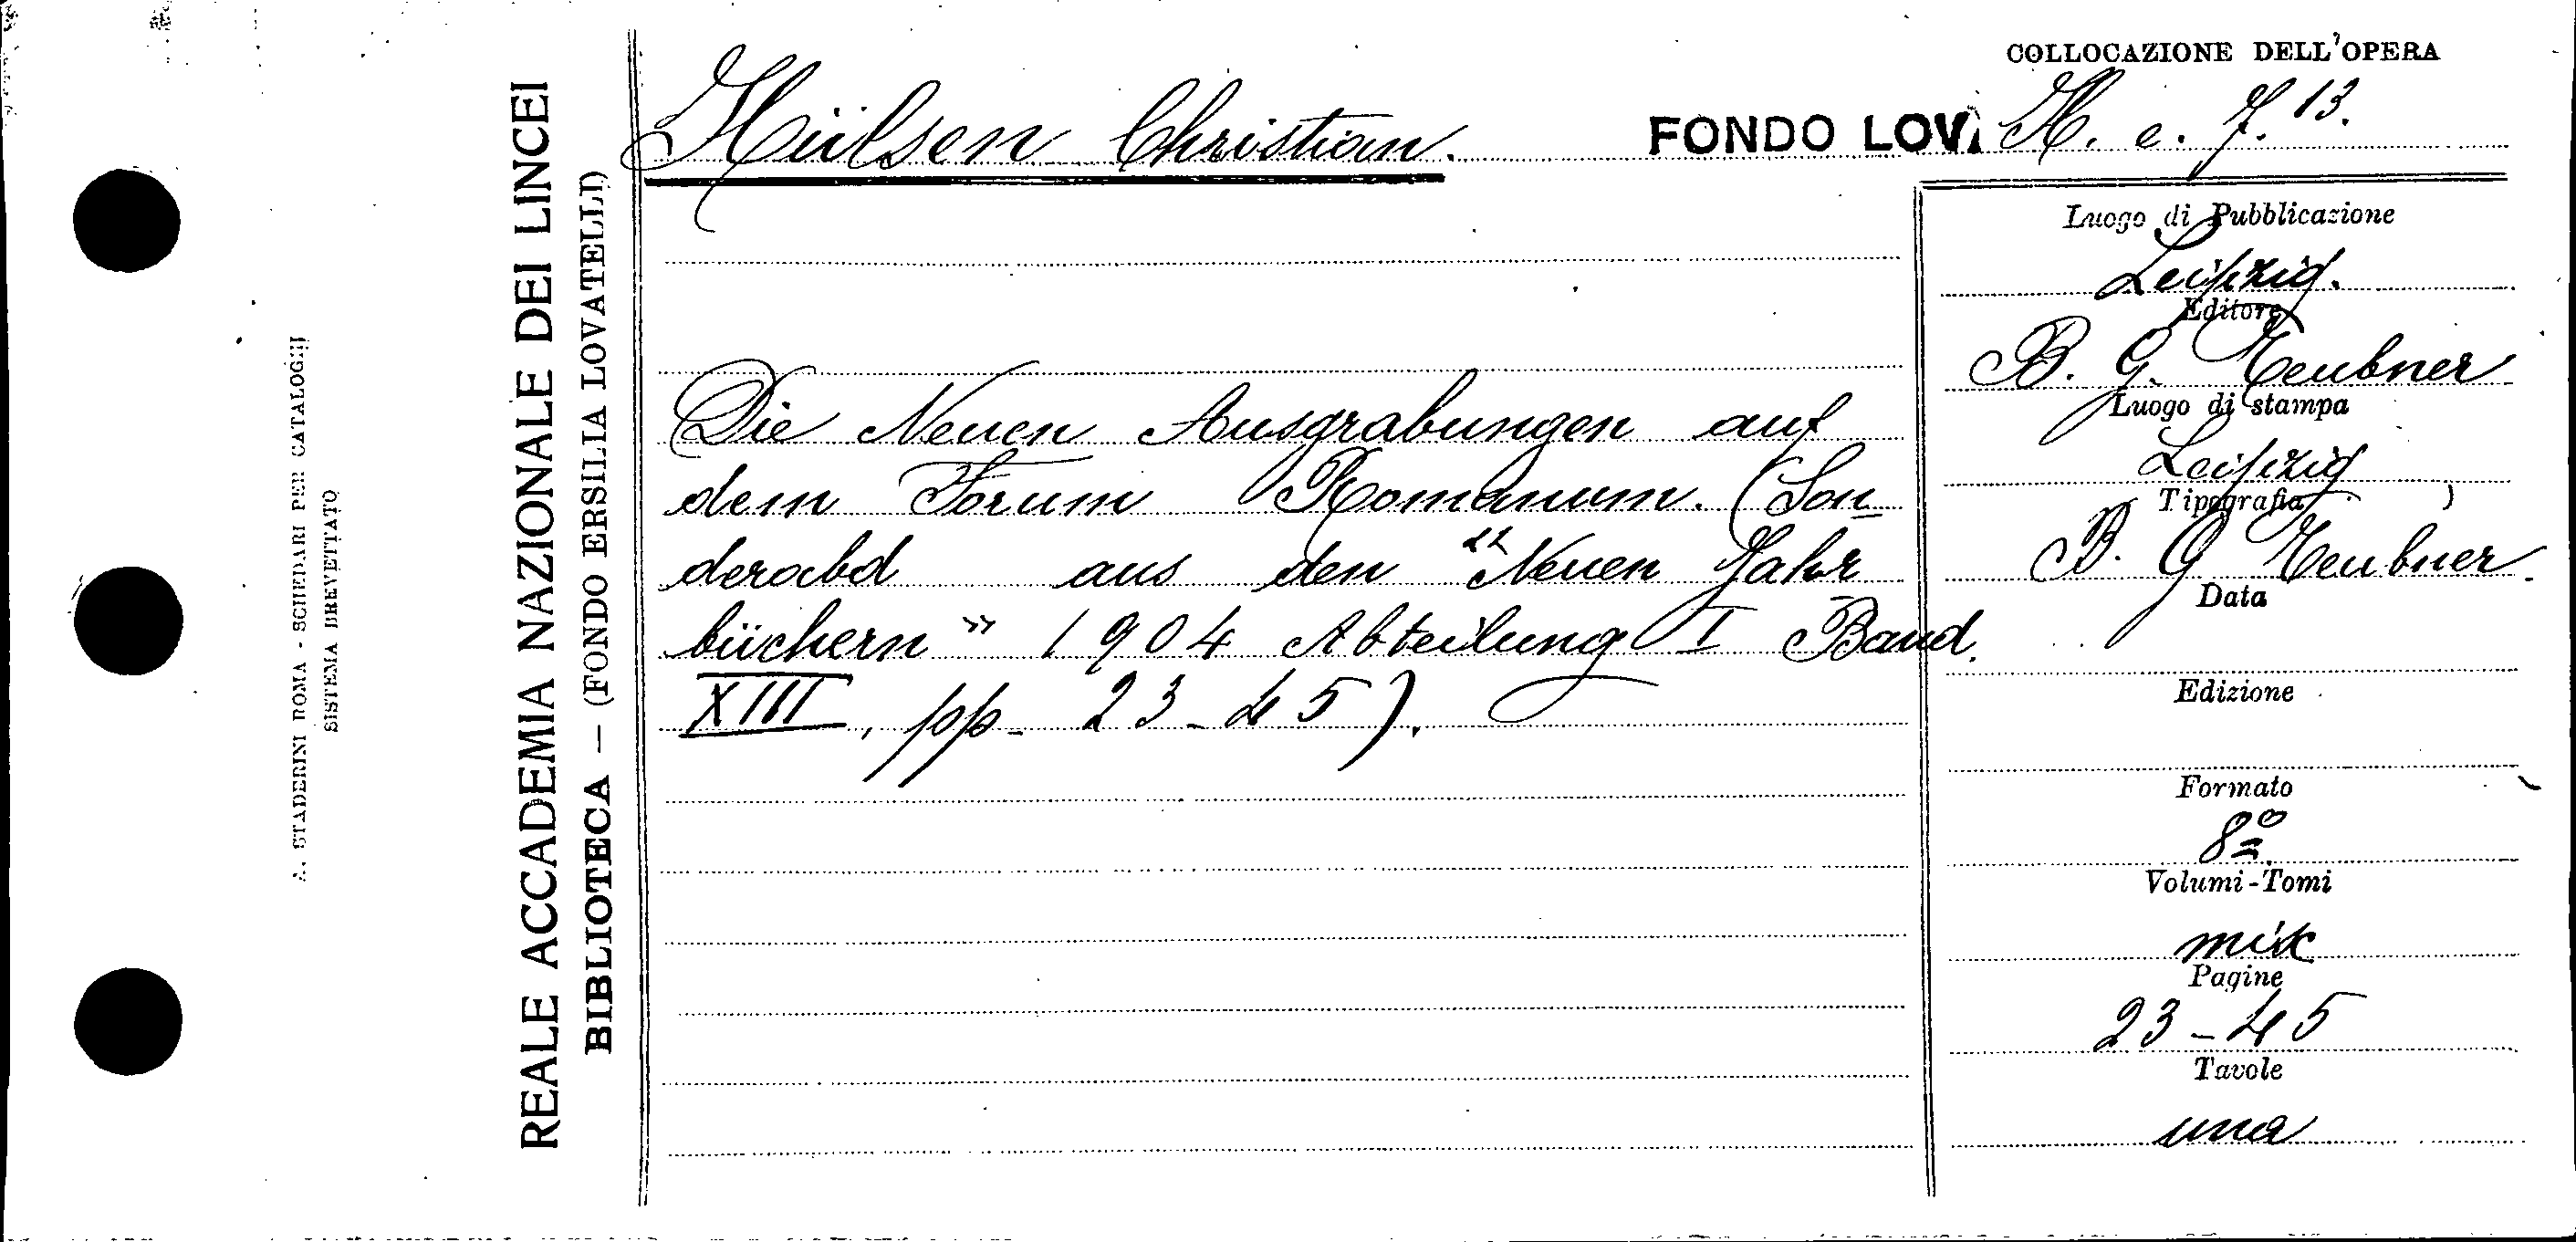 COLLOCAZIONE DELL'OPERA
Hülsen Christian.
FONDO LOV. H. e. 7. 13.
REALE ACCADEMIA NAZIONALE DEI LINCEI
BIBLIOTECA — (FONDO ERSILIA LOVATELLI)
A. STADERINI ROMA - SCHEDARI PER CATALOGHI
SISTEMA BREVETTATO
Die Neuen Ausgrabungen auf
dem Forum Romanum. (Son
derabd aus den "Neuen Jahr
büchern" 1904 Abteilung I Band.
XIII, pp- 23-45).
Luogo di Pubblicazione
Leipzig.
Editore
B. G. Teubner
Luogo di stampa
Leipzig
Tipografia
B. G Teubner.
Data
Edizione
Formato
8º
Volumi-Tomi
Pagine
23-45
Tavole
una